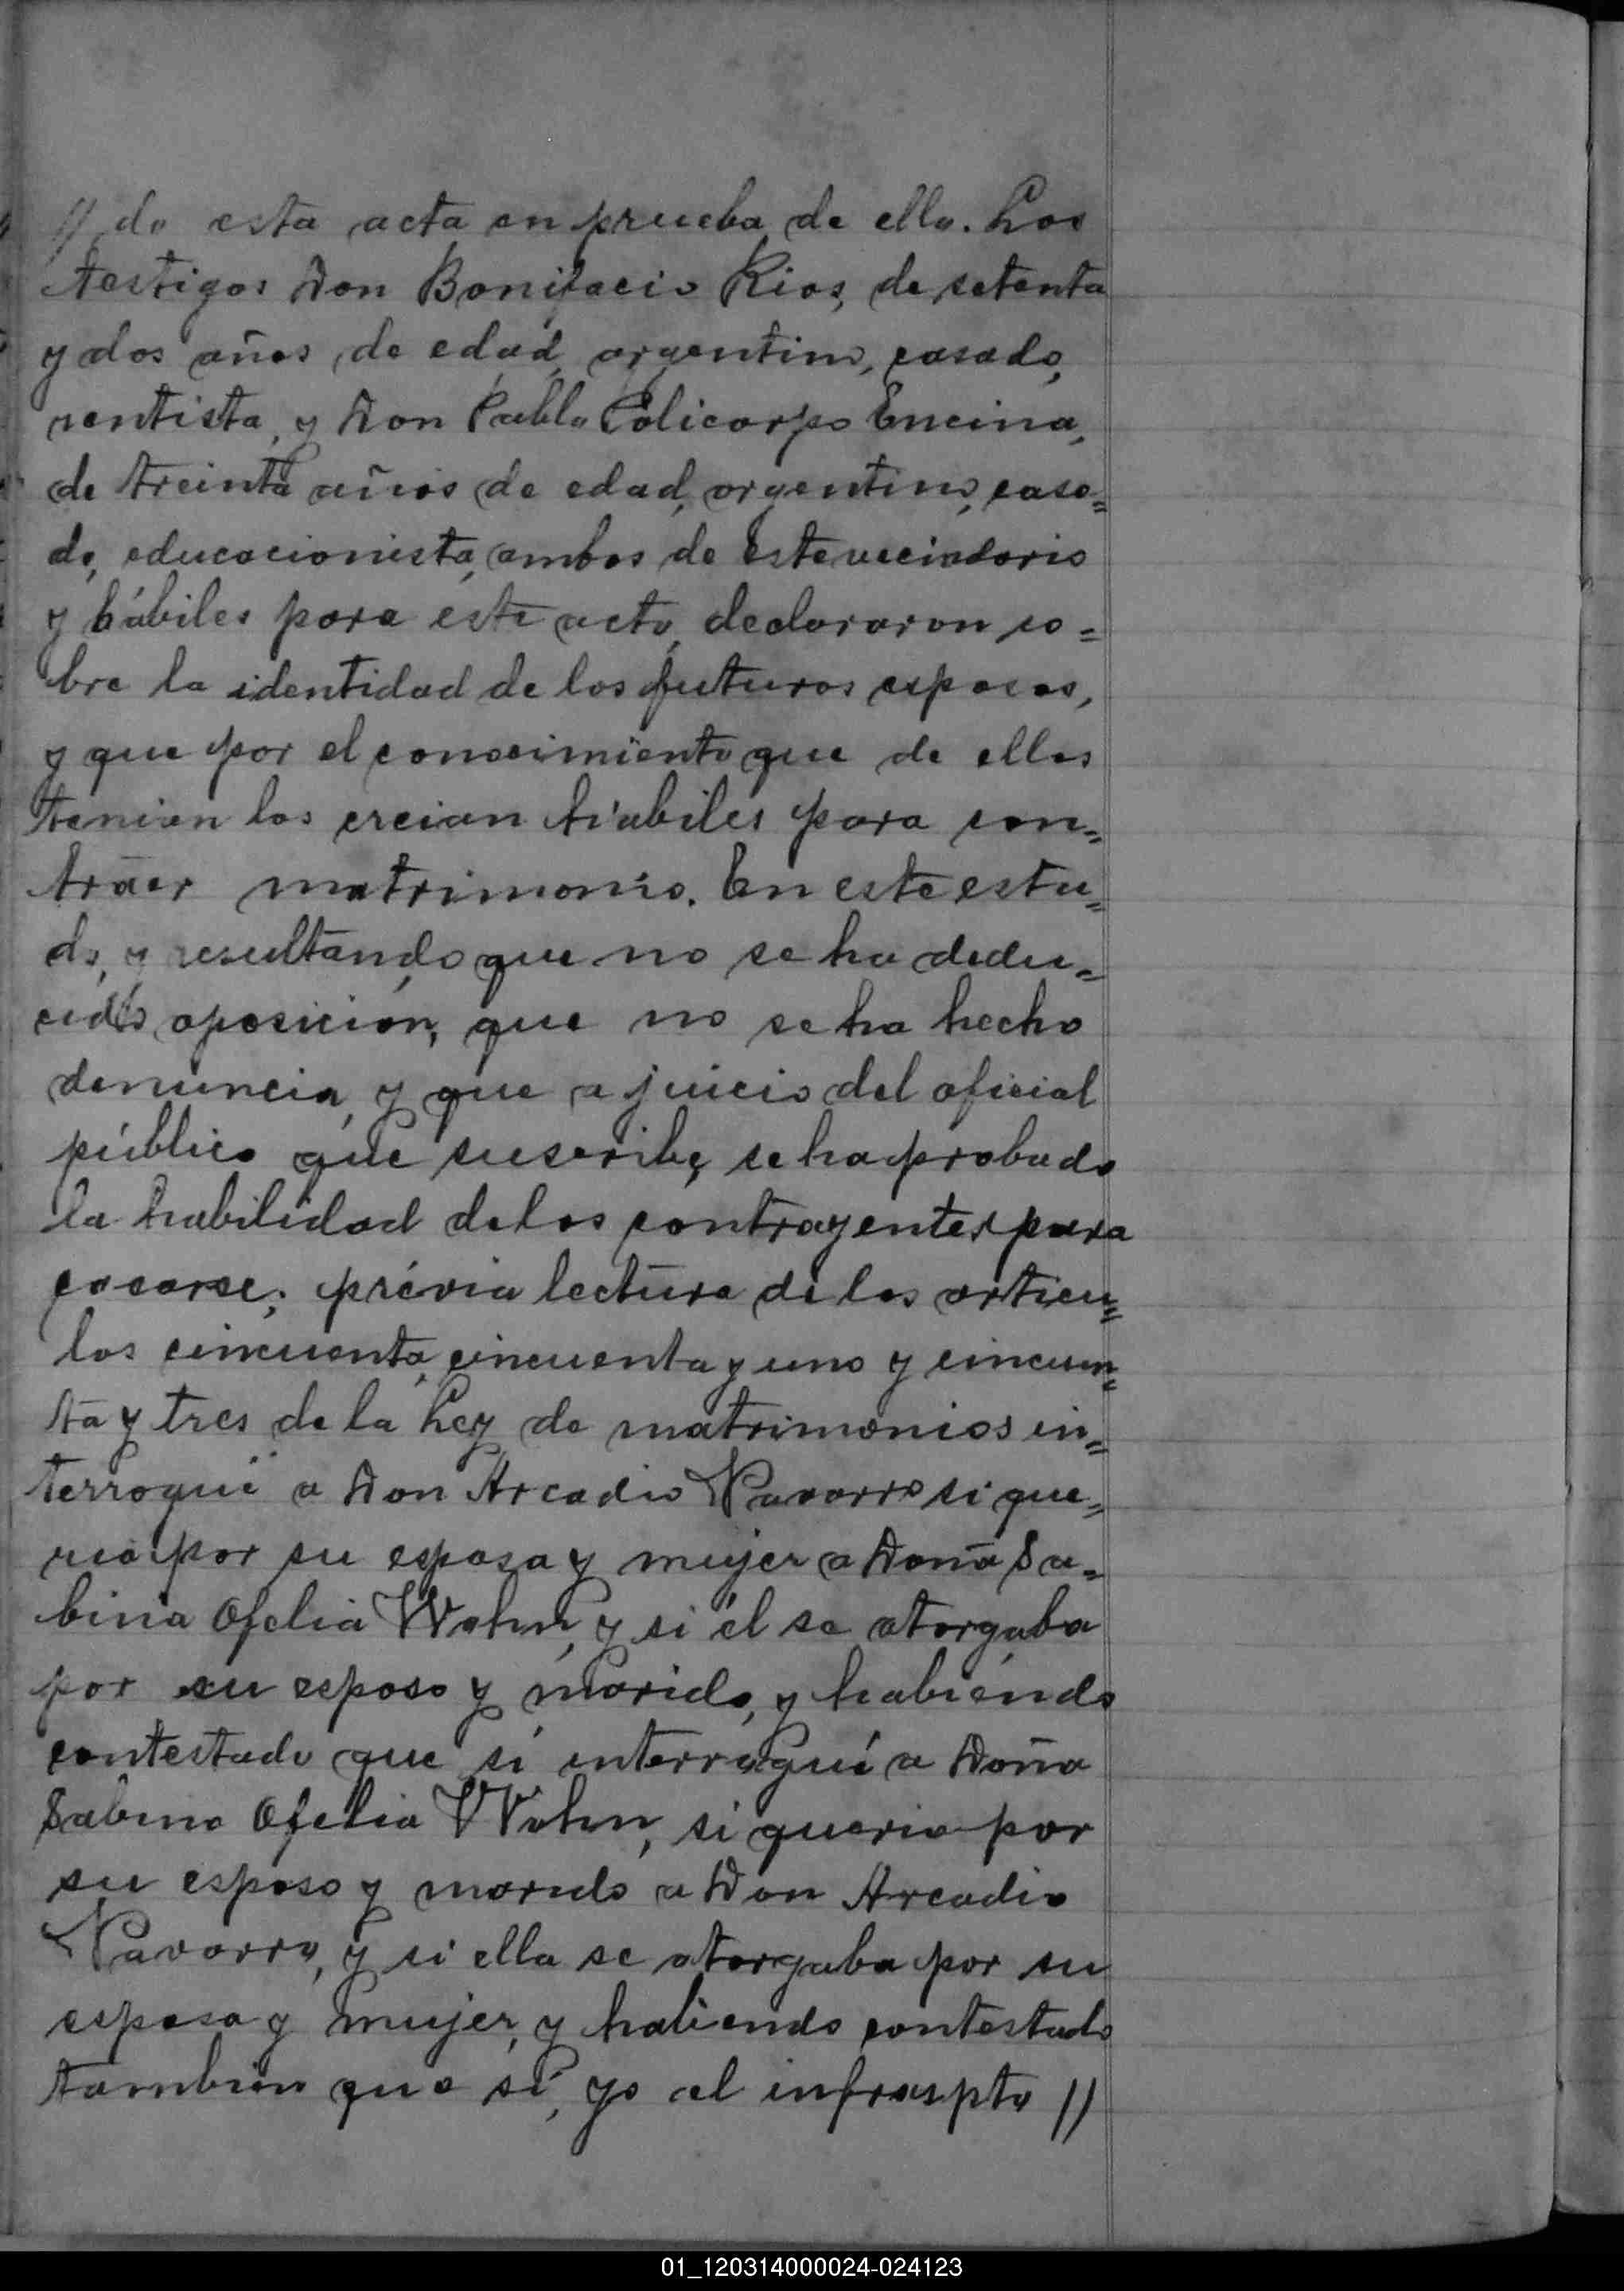 // do esta acta en prueba de ello. Los
testigos Don Bonifacio Rios, de setenta
y dos años de edad, argentino, casado,
rentista, y Don Pablo Policarpo Encina,
de treinta años de edad, argentino, casa=
do, educacionista, ambos de este vecindario
y hábiles para este acto, declararon so=
bre la identidad de los futuros esposos,
y que por el conocimiento que de ellos
tenian los creian hábiles para con=
traer matrimonio. En este esta=
do, y resultando que no se ha dedu=
cido oposición, que no se ha hecho
denuncia, y que a juicio del oficial
público que suscribe, se ha probado
la habilidad de los contrayentes para
casarse; prévia lectura de los artícu=
los cincuenta, cincuenta y uno y cincuen=
ta y tres de la Ley de matrimonios in=
terrogué a Don Arcadio Navarro si que=
ria por su esposa y mujer a Doña Sa=
bina Ofelia Wohn, y si él se otorgaba
por su esposo y marido, y habiendo
contestado que sí interrogué a Doña
Sabina Ofelia Wohn, si queria por
su esposo y marido a Don Arcadio
Navarro, y si ella se otorgaba por su
esposa y mujer, y habiendo contestado
tambien que sí, yo el infraspto //
01_120314000024-024123